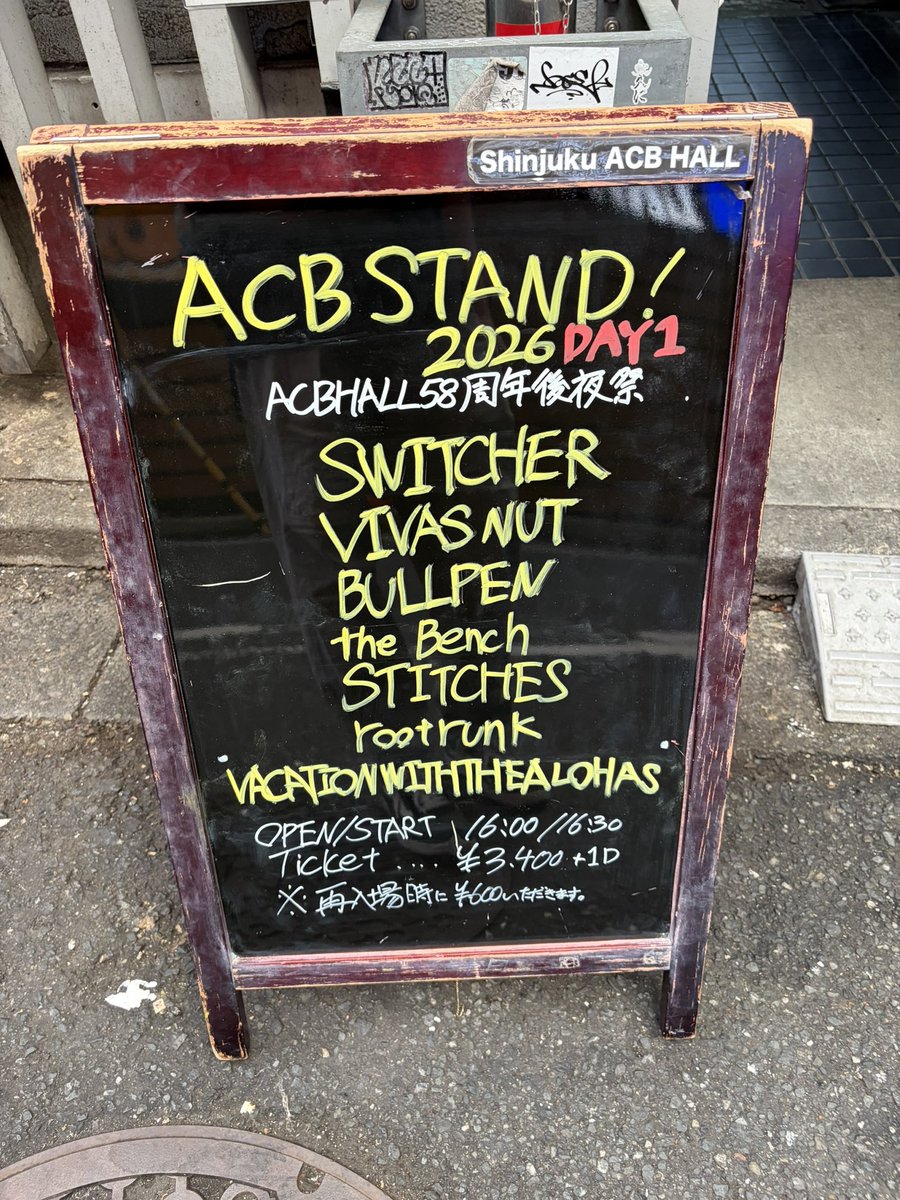 Shinjuku ACB HALL
ACB STAND!
2026 DAY1
ACBHALL58周年後夜祭
SWITCHER
VIVAS NUT
BULLPEN
the Bench
STITCHES
rootrunk
VACATIONWITHTHEALOHAS
OPEN/START 16:00/16:30
Ticket .... ¥3.400+1D
※再入場時に¥600いただきます。